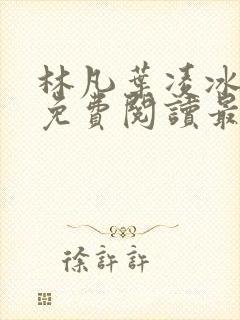 林凡葉凌冰
免費閱讀最
徐許許